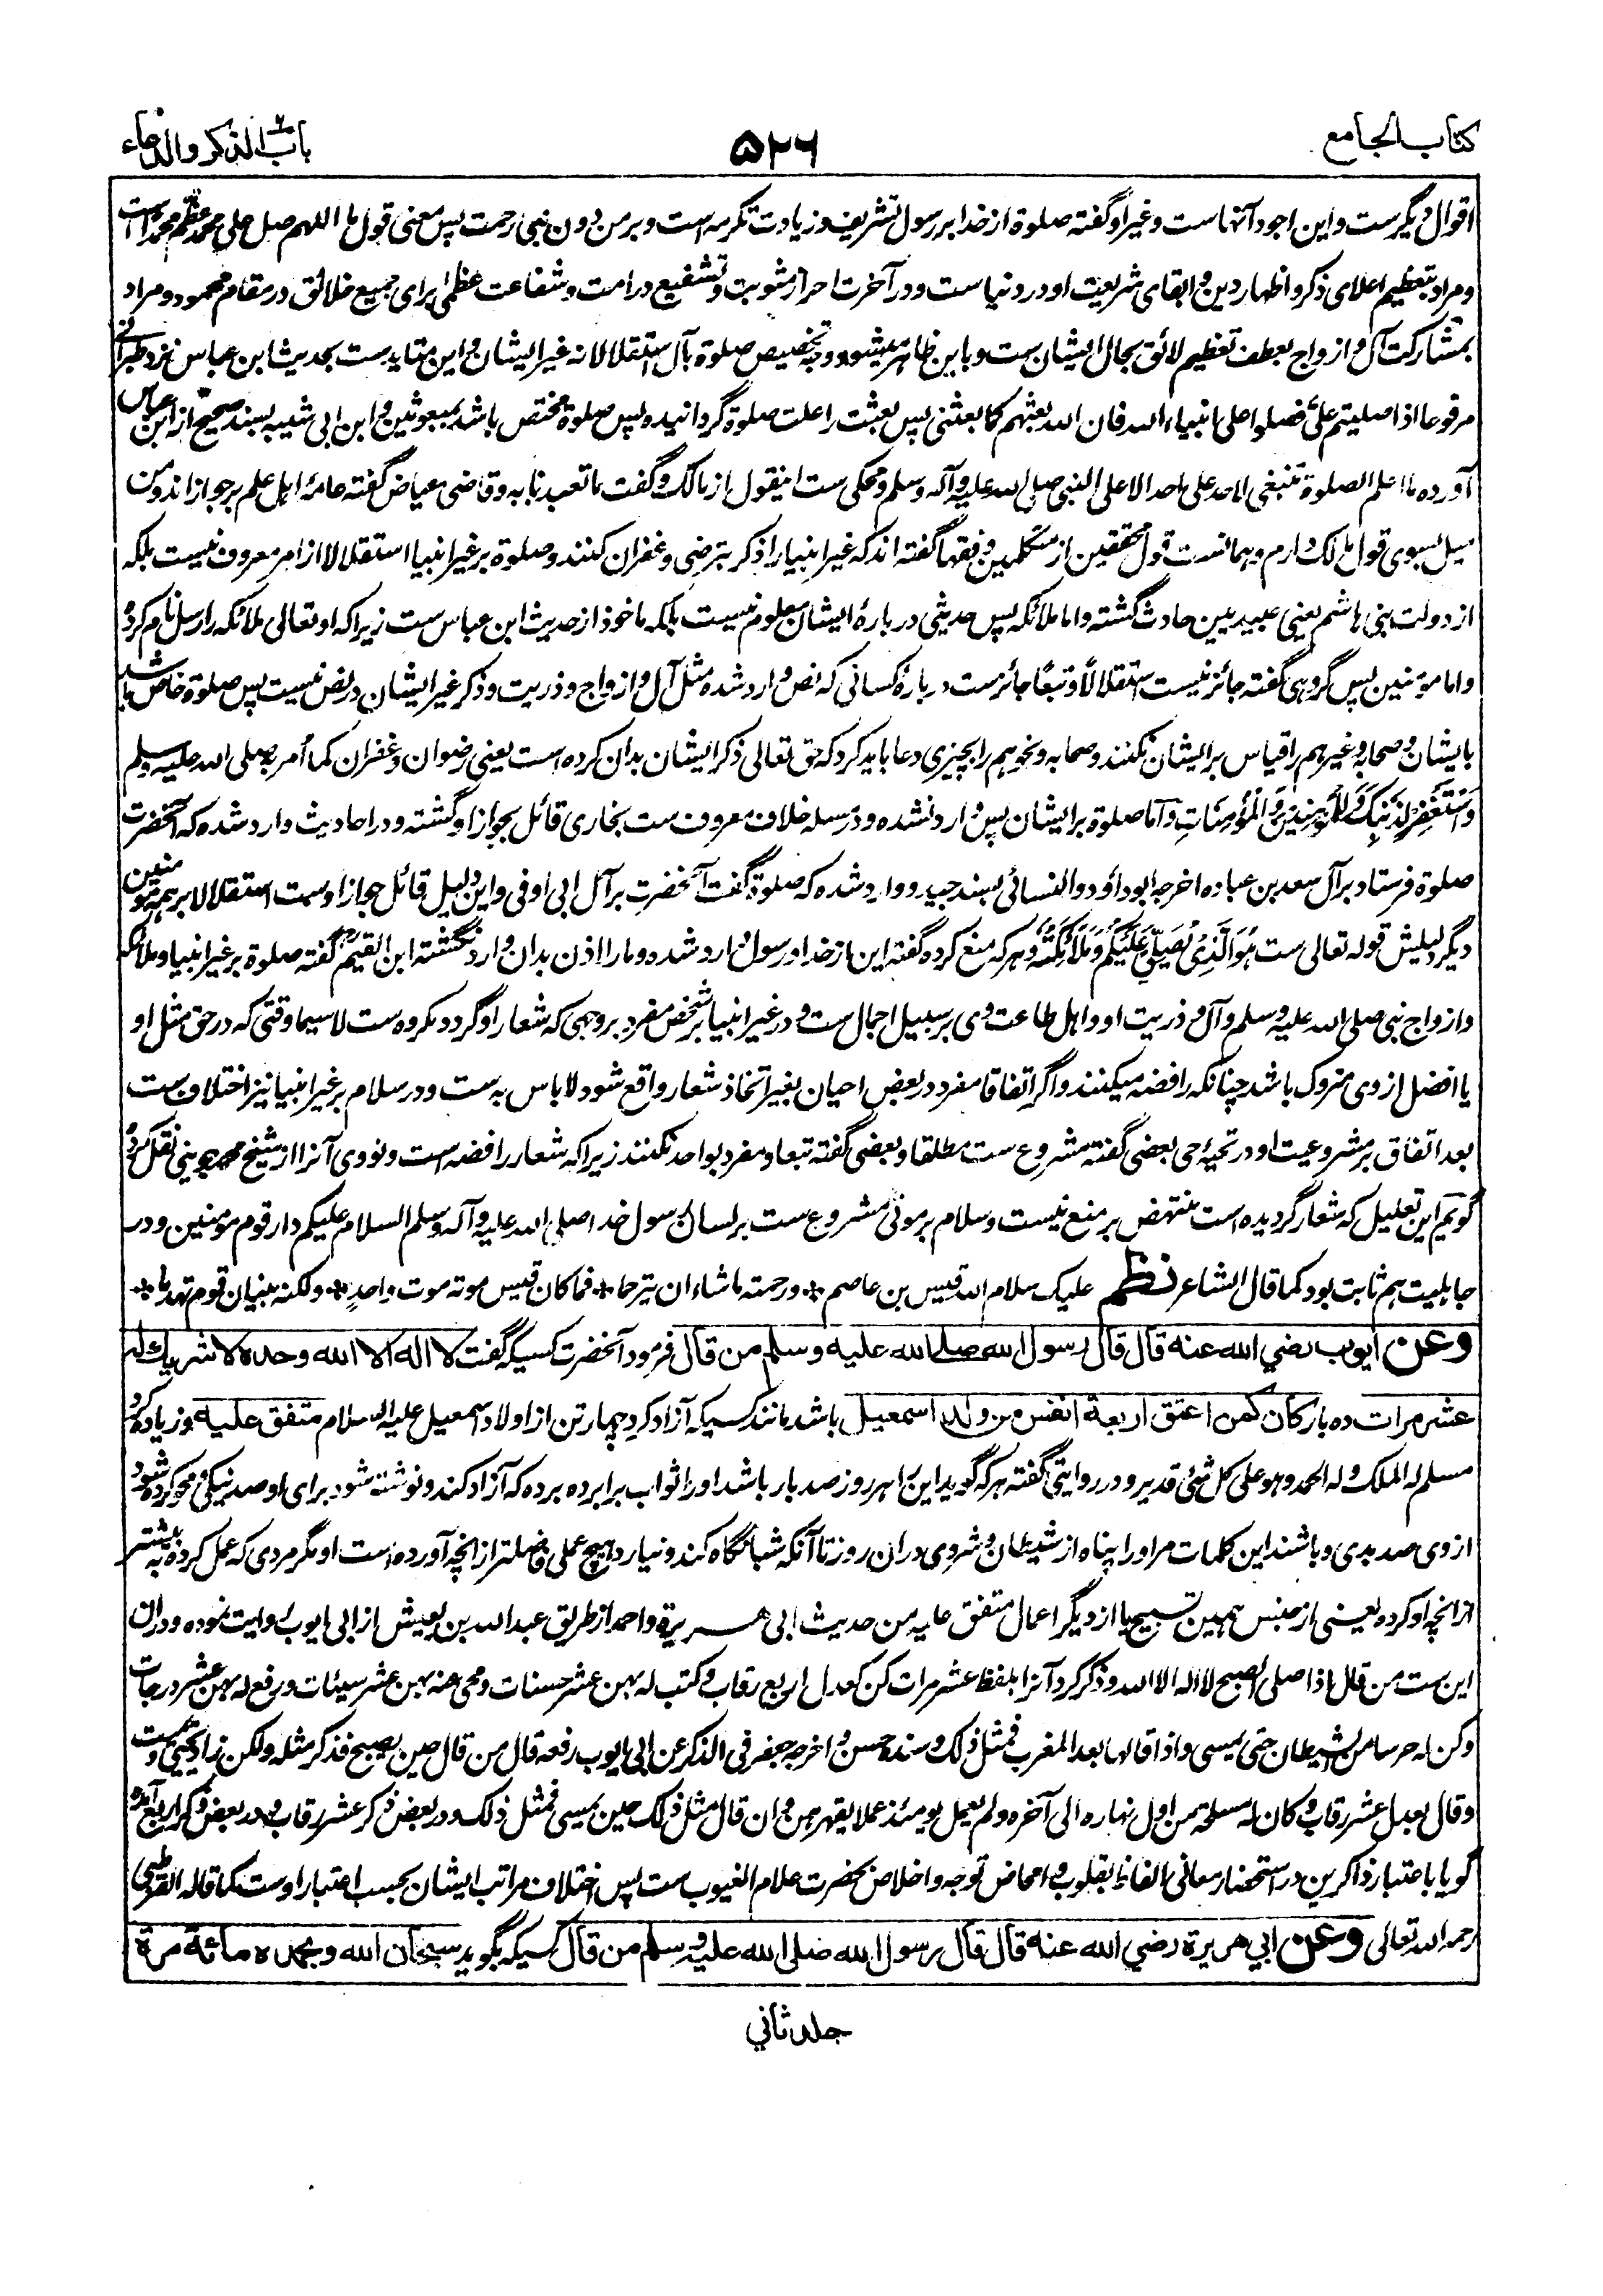 کتاب الجامع
۵۲۶
باب الذکر والدعاء
اقوال دیگرست و این اجود آنهاست و غیر او گفته صلوة از خدا بر رسول تشریف و زیادت تکرمه است و بر من دون نبی رحمت پس معنی قول ما اللهم صل علی محمد عظم محمدا است
و مراد بتعظیم اعلای ذکر و اظهار دین و ابقای شریعت او در دنیاست و در آخرت احراز مثوبت و تشفیع در امت و شفاعت عظمی برای جمیع خلائق در مقام محمود و مراد
بمشارکت آل و ازواج بعطف تعظیم لائق بحال ایشان ست و باین ظاهر میشود وجه تخصیص صلوة بآل استقلالا نه غیر ایشان و این متاید ست بحدیث ابن عباس نزد طبرانی
مرفوعا اذا صلیتم علی فصلوا علی انبیاء الله فان الله بعثهم کما بعثنی پس بعثت را علت صلوة گردانیده پس صلوة مختص باشد بمبعوثین و ابن ابی شیبه بسند صحیح از ابن عباس
آورده ما اعلم الصلوة تنبغی لاحد علی احد الا علی النبی صلی الله علیه و آله وسلم و محکی ست این قول از مالک و گفت ما تعبدنا به و قاضی عیاض گفته عامهٔ اهل علم بر جواز اند و من
میل بسوی قول مالک دارم و همانست قول محققین از متکلمین و فقها گفته اند که غیر انبیا را ذکر بترضی و غفران کنند و صلوة بر غیر انبیا استقلالا از امر معروف نیست بلکه
از دولت بنی هاشم یعنی عبیدیین حادث گشته و اما ملائکه پس حدیثی دربارهٔ ایشان معلوم نیست بلکه ماخوذ از حدیث ابن عباس ست زیراکه او تعالی ملائکه را رسل نام کرد
و اما مؤمنین پس گروهی گفته جائز نیست استقلالاً و تبعاً جائزست دربارهٔ کسانی که نص وارد شده مثل آل و ازواج و ذریت و ذکر غیر ایشان در نص نیست پس صلوة خاص باشد
بایشان و صحابه و غیرهم را قیاس بر ایشان نکنند و صحابه و نحوهم را بچیزی دعا باید کرد که حق تعالی ذکر ایشان بدان کرده است یعنی رضوان و غفران کما أمر به صلی الله علیه وسلم
وَاسْتَغْفِرْ لِذَنْبِكَ وَلِلْمُؤْمِنِينَ وَالْمُؤْمِنَاتِ و اما صلوة بر ایشان پس وارد نشده و در مسئله خلاف معروف ست بخاری قائل بجواز او گشته و در احادیث وارد شده که آنحضرت
صلوة فرستاد بر آل سعد بن عباده اخرجه ابو داؤد والنسائی بسند جید و وارد شده که صلوة گفت آنحضرت بر آل ابی اوفی و این دلیل قائل جواز اوست استقلالا بر همه مؤمنین
دیگر دلیلش قوله تعالی ست هُوَ الَّذِي يُصَلِّي عَلَيْكُمْ وَمَلَائِكَتُهُ و هر که منع کرده گفته این از خدا و رسول وارد شده و ما را اذن بدان وارد نگشته ابن القیم گفته صلوة بر غیر انبیا و ملائکه
و ازواج نبی صلی الله علیه وسلم و آل و ذریت او و اهل طاعت وی بر سبیل اجمال ست و در غیر انبیا بر شخص مفرد بروجهی که شعار او گردد مکروه ست لاسیما وقتی که در حق مثل او
یا افضل از وی متروک باشد چنانکه رافضه میکنند و اگر اتفاقا مفرد در بعض احیان بغیر اتخاذ شعار واقع شود لا باس به ست و در سلام بر غیر انبیا نیز اختلاف ست
بعد اتفاق بر مشروعیت او در تحیهٔ حی بعضی گفته مشروع ست مطلقا و بعضی گفته تبعا و مفرد بواحد نکنند زیراکه شعار رافضه است و نووی آنرا از شیخ محمد جوینی نقل کرده
گویم این تعلیل که شعار گردیده است منتهض بر منع نیست و سلام بر موتی مشروع ست بر لسان رسول خدا صلی الله علیه و آله وسلم السلام علیکم دار قوم مؤمنین و در
جاهلیت هم ثابت بود کما قال الشاعر نظم علیک سلام الله قیس بن عاصم * ورحمته ما شاء ان یترحما * فما کان قیس موته موت واحدٍ * ولکنه بنیان قوم تهدما *
وعن ایوب رضی الله عنه قال قال رسول الله صلی الله علیه وسلم من قال فرمود آنحضرت کسیکه گفت لا اله الا الله وحده لا شریك له
عشر مرات ده بار کان کمن اعتق اربعة انفس من ولد اسمعیل باشد مانند کسیکه آزاد کرد چهار تن از اولاد اسمعیل علیه السلام متفق علیه و زیاده کرد
مسلم له الملک و له الحمد و هو علی کل شیٔ قدیر و در روایتی گفته هر که گوید این را هر روز صد بار باشد او را ثواب برابر ده برده که آزاد کند و نوشته شود برای او صد نیکی و محو کرده شود
از وی صد بدی و باشند این کلمات مر او را پناه از شیطان و شر وی دران روز تا آنکه شبانگاه کند و نیارد هیچ عملی فاضلتر از انچه آورده است او مگر مردی که عمل کرده به بیشتر
از انچه او کرده یعنی از جنس همین تسبیح یا از دیگر اعمال متفق علیه من حدیث ابی هریرة و احمد از طریق عبد الله بن یعیش از ابی ایوب روایت نموده و دران
این ست من قال اذا صلی الصبح لا اله الا الله و ذکر کرد آنرا بلفظ عشر مرات کن کعدل اربع رقاب و کتب له بهن عشر حسنات و محی عنه بهن عشر سیئات و رفع له بهن عشر درجات
وکن له حرسا من الشیطان حتی یمسی و اذا قالها بعد المغرب فمثل ذلک و سنده حسن و اخرجه جعفر فی الذکر عن ابی ایوب رفعه قال من قال حین یصبح فذکر مثله ولکن زاد یحیی و یمیت
و قال یعدل عشر رقاب و کان له مسلحة من اول نهاره الی آخره و لم یعمل یومئذ عملا یقهرهن و ان قال مثل ذلک حین یمسی فمثل ذلک و در بعض ذکر عشر رقاب و در بعض ذکر اربع آمده
گویا باعتبار ذاکرین در استحضار معانی الفاظ بقلوب و امحاض توجه و اخلاص بحضرت علام الغیوب ست پس اختلاف مراتب ایشان بحسب اعتبار اوست کما قاله القرطبی
رحمه الله تعالی وعن ابی هریرة رضی الله عنه قال قال رسول الله صلی الله علیه وسلم من قال کسیکه بگوید سبحان الله وبحمده مائة مرة
جلد ثانی